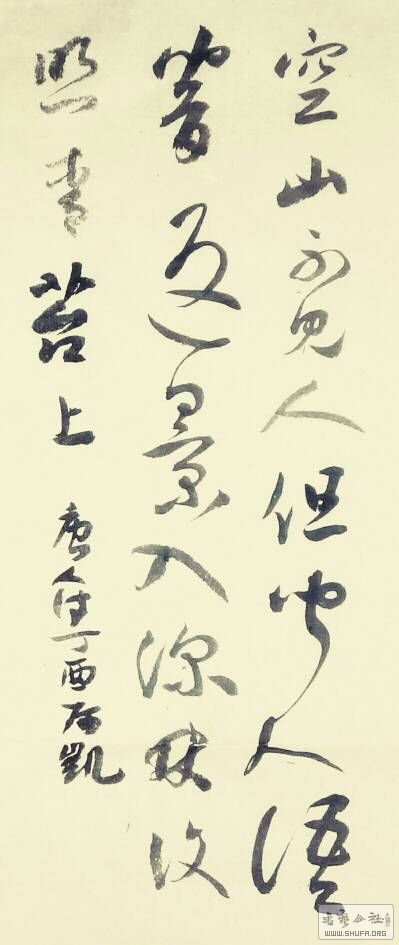 空山不見人但聞人語
響返景入深林復
照青苔上
唐人 丁酉 凱
书艺公社
WWW.SHUFA.ORG